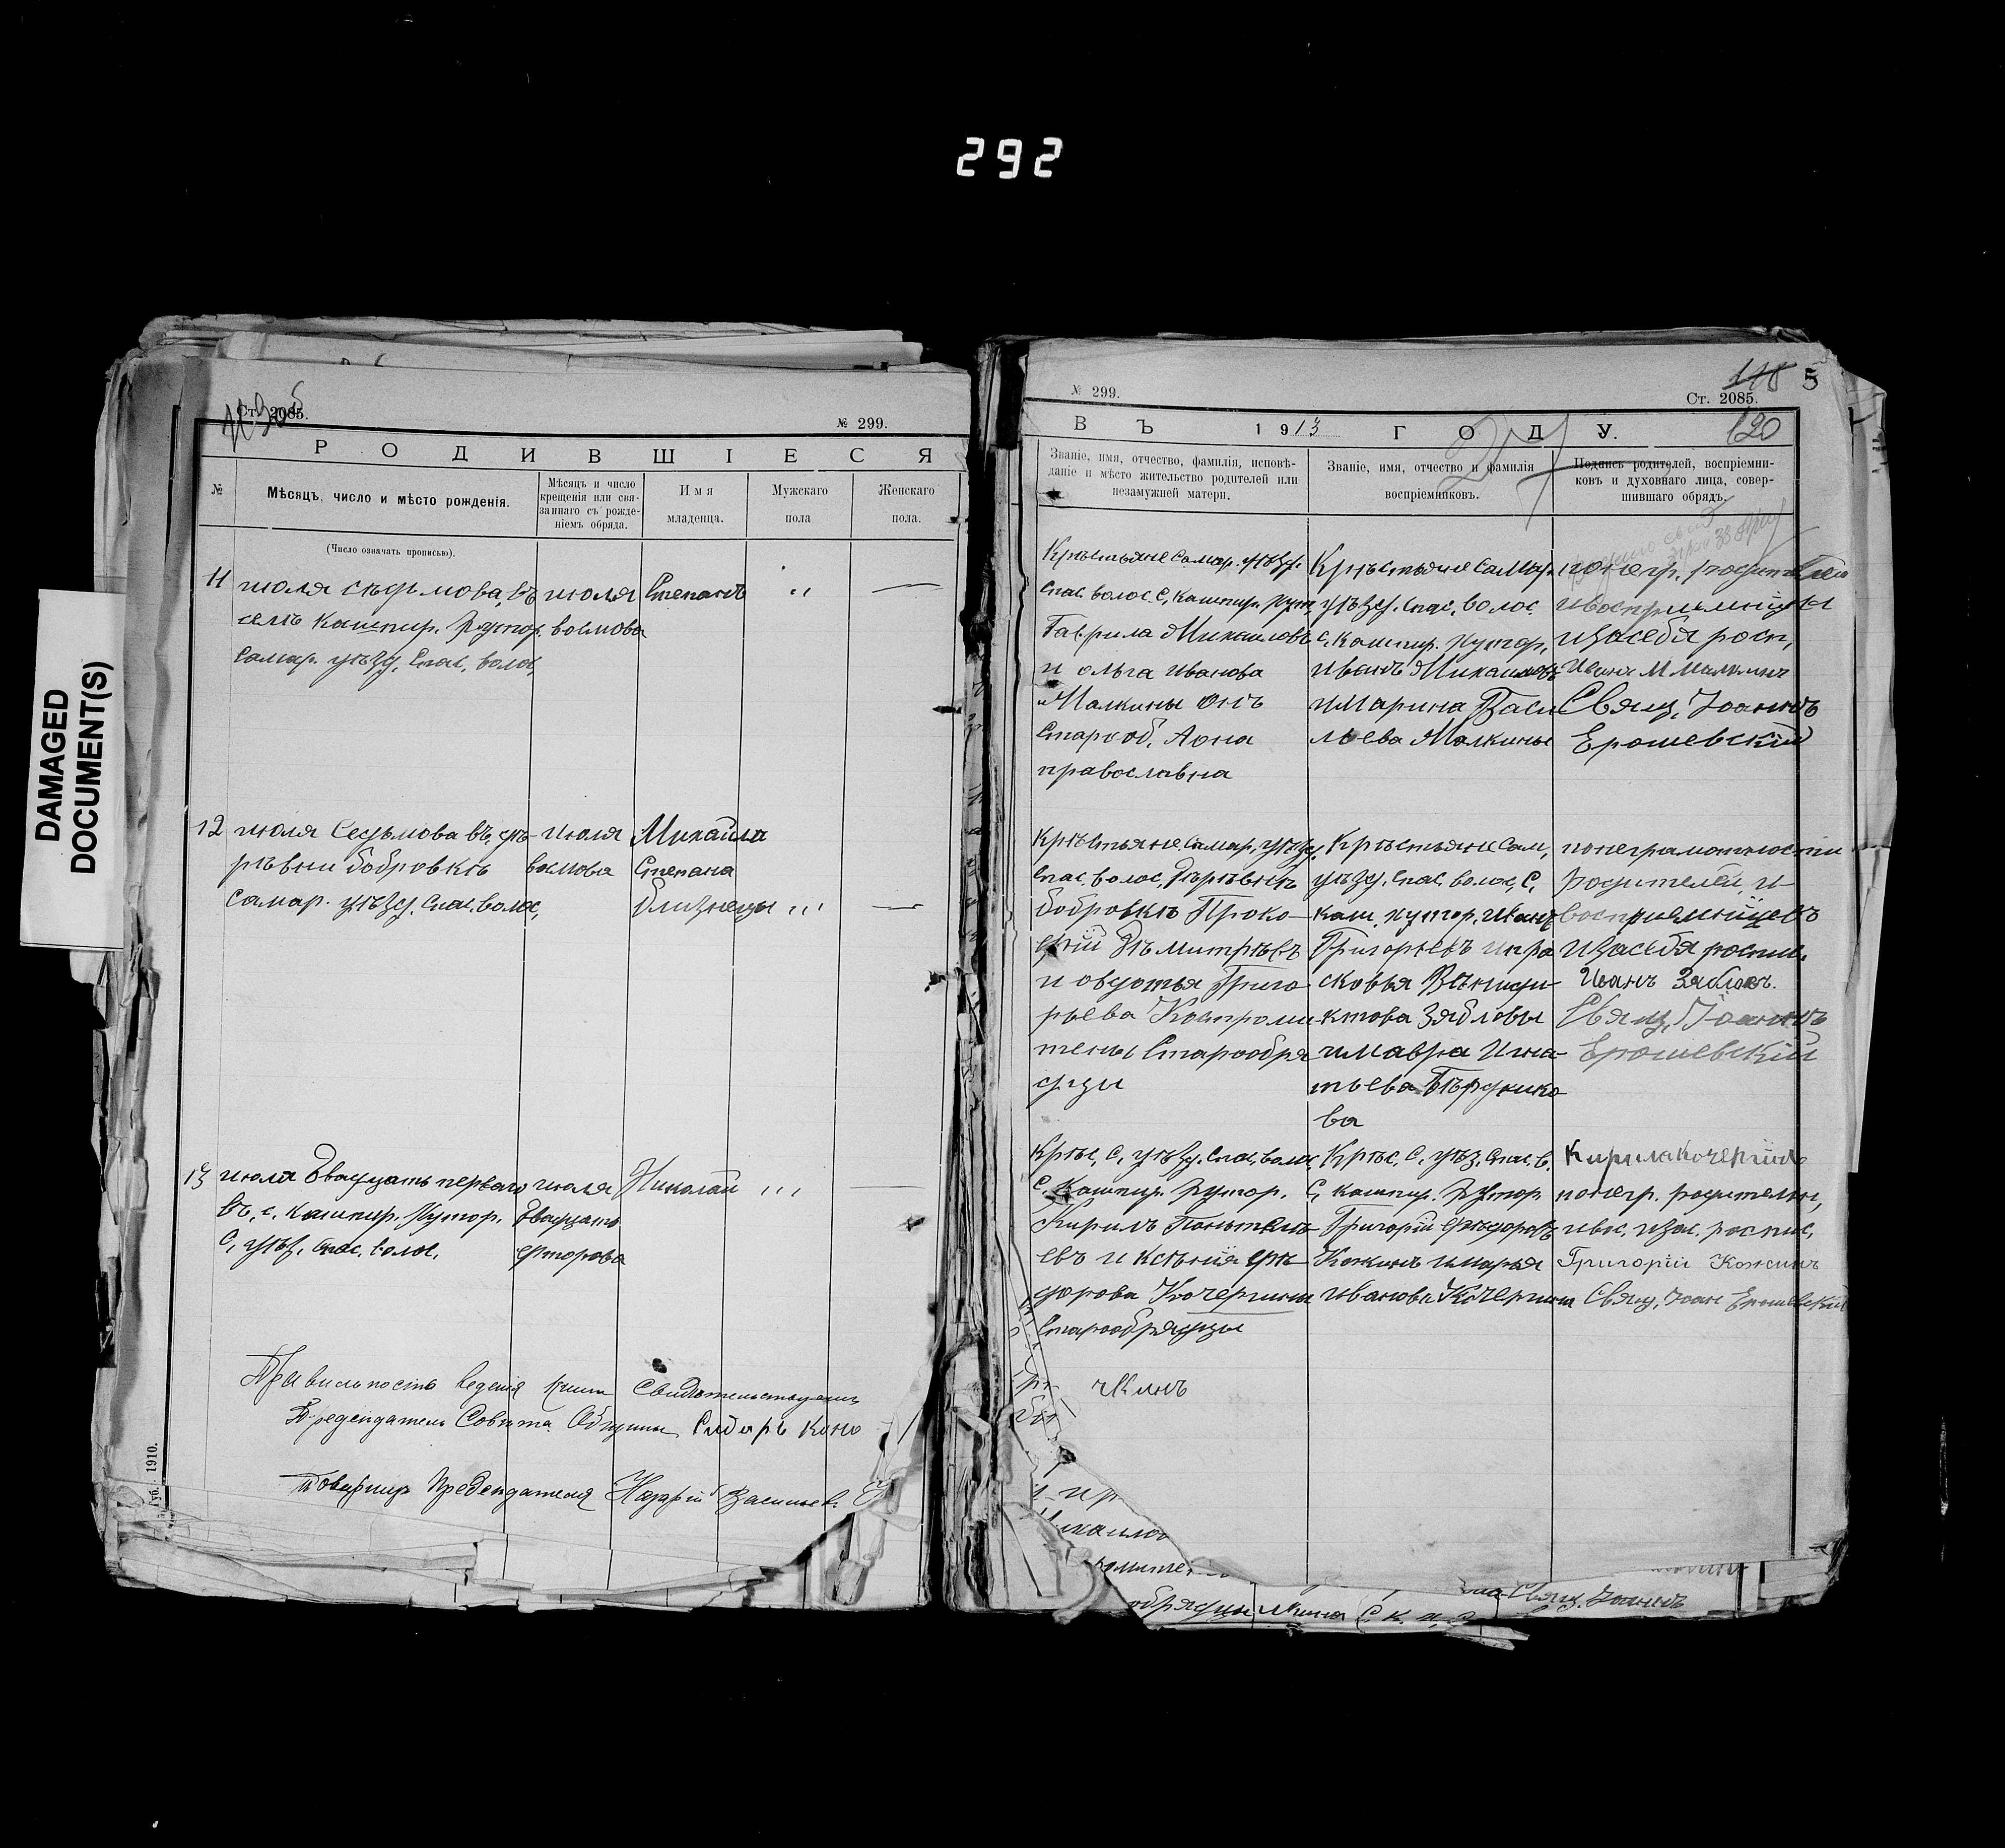 292
DAMAGED
DOCUMENT(S)
Ст. 2085.
№ 299.
РОДИВШІЕСЯ
№
Мѣсяцъ, число и мѣсто рожденія.
Мѣсяцъ и число
крещенія или свя-
заннаго съ рожде-
ніемъ обряда.
Имя
младенца.
Мужскаго
пола
Женскаго
пола.
(Число означать прописью).
11 июля сѣдьмова, въ
селѣ Кашпир. Хутор.
Самар. уѣзд. Спас. волос,
июля
восмова
Степанъ
12 июля Седьмова въ, дѣ-
рѣвни бобровкѣ
Самар. уѣзд. Спас. волос,
июля
восмова
Михаила
Степана
близнецы
13 июля двадцать перваго
въ, с. Кашпир. Хутор.
С, уѣз, Спас. волос.
июля
двадцать
второва
Николай
Правильность веденія книги Свидѣтельствуемъ
Председатель Совѣта Общины Сидоръ Коно
Товарищъ Председателя Назарій Васильев.
1910.
№ 299.
Ст. 2085.
118 5
120
ВЪ 1913 ГОДУ.
Званіе, имя, отчество, фамилія, исповѣ-
даніе и мѣсто жительство родителей или
незамужней матери.
Званіе, имя, отчество и фамилія
воспріемниковъ.
Подпись родителей, воспріемни-
ковъ и духовнаго лица, совер-
шившаго обрядъ.
Крѣстьяне Самар. уѣзд.
Спас. волос. С, Кашпир. Хут,
Гаврила Михаиловъ
и ольга Иванова
Малкины онъ
Старооб. Аона
православна
Крѣстьяне Самар.
уѣзд. Спас. волос.
С, Кашпир. Хутор,
Иванъ Михаиловъ
и Марина Васи
льева Малкины
понегр. родителей
и
изасебя росп,
Иванъ М Малкинъ
Свящ, Іоаннъ
Ерошевскій
Крѣстьяне Самар, уѣзд,
Спас. волос, Дѣрѣвнѣ
бобровкѣ Проко-
фій Дѣмитрѣвъ
и овдотья Григо
рьева
Старообря
дцы
Крѣстьяне Сам,
уѣзд. Спас. волос, С,
каш. хутор. Иванъ
Григорьевъ и пра
сковья Вѣниди-
ктова Зябловы
и мавра Игна-
тьева Бѣрдникo
ва
понеграмотности
родителей и
восприемницевъ
изасебя роспис.
Иванъ Зябловъ.
Свящ, Іоаннъ
Ерошевскій
Крѣс, С, уѣзд. Спас, волос
С. Кашпир. Хутор.
Кирилъ Понтѣлѣ
евъ и ксѣнія фѣ-
дорова Кочергины
Старообрядцы
Крѣс. С, уѣз, Спас. в.
С, кашпир. Хутор
Григорій Фѣдоровъ
Кожинъ и марья
Иванова Кочергина
Кирила Кочергинъ
понегр. родители,
и вос. изас. роспис,
Григорій Кожинъ
Свящ, Іоан Ерошевскій
обрядцы
Свящ. Іоаннъ